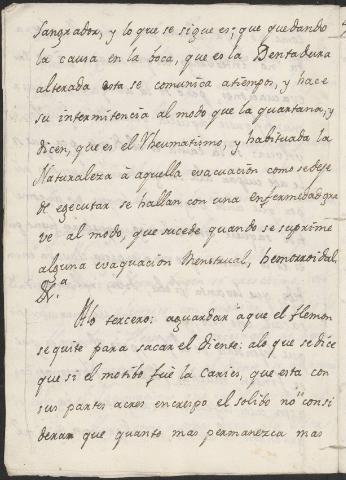 Sangrador, y lo que se sigue es; que quedando
la causa en la boca, que es la Dentadura
alterada esta se comunica atiempos, y hace
su intermitencia al modo que la quartana, y
dicen, que es el Rheumatismo, y habituada la
Naturaleza à aquella evacuación como se deje
de egecutar se hallan con una enfermedad gra
ve al modo, que sucede quando se suprime
alguna evaquación Menstrual, hemorroidal.
Dr.ª
Alo tercero: aguardar aque el flemon
se quite para sacar el diente: alo que se dice
que si el motibo fuè la Caries, que esta con
sus partes acres encrespo el solido no consi
deran que quanto mas permanezca mas